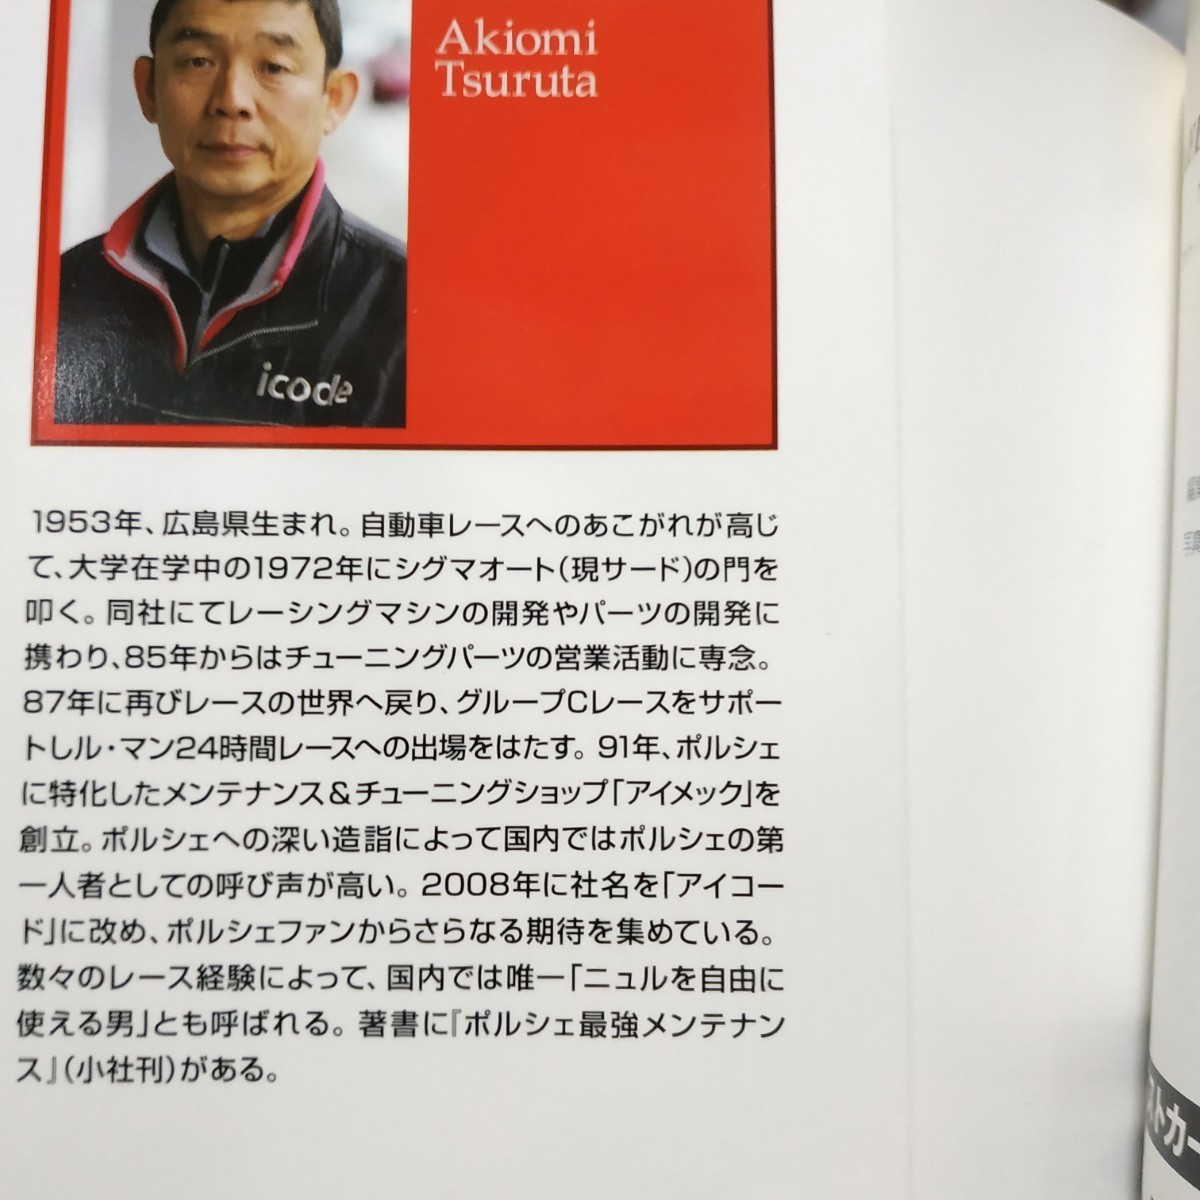 Akiomi
Tsuruta
icode
1953年、広島県生まれ。自動車レースへのあこがれが高じ
て、大学在学中の1972年にシグマオート(現サード)の門を
叩く。同社にてレーシングマシンの開発やパーツの開発に
携わり、85年からはチューニングパーツの営業活動に専念。
87年に再びレースの世界へ戻り、グループCレースをサポー
トしル・マン24時間レースへの出場をはたす。91年、ポルシェ
に特化したメンテナンス＆チューニングショップ「アイメック」を
創立。ポルシェへの深い造詣によって国内ではポルシェの第
一人者としての呼び声が高い。2008年に社名を「アイコー
ド」に改め、ポルシェファンからさらなる期待を集めている。
数々のレース経験によって、国内では唯一「ニュルを自由に
使える男」とも呼ばれる。著書に『ポルシェ最強メンテナン
ス』(小社刊)がある。
トカー